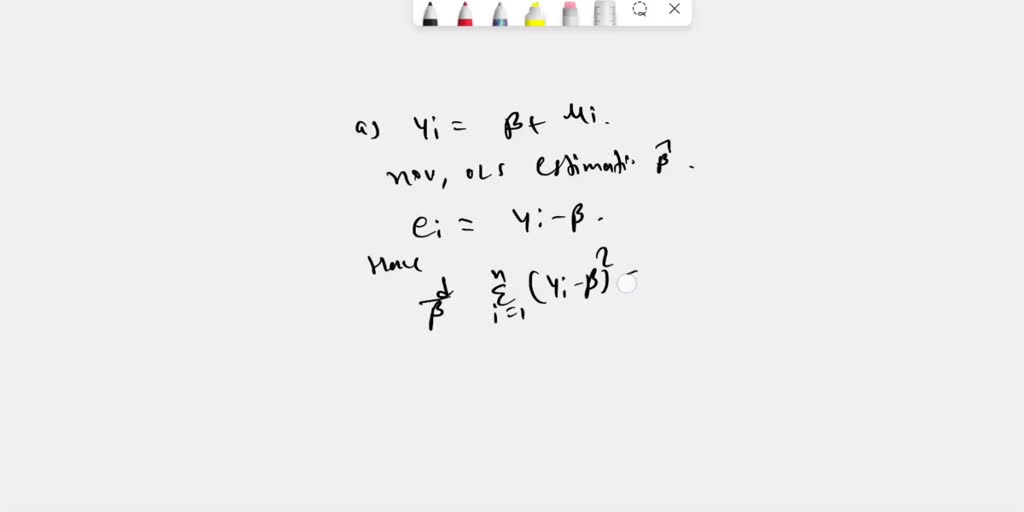 a) Yi = β + Ui.
now, OLS estimati. β̂.
ei = Yi - β.
Hence
d/β Σ i=1 n (Yi - β)² =